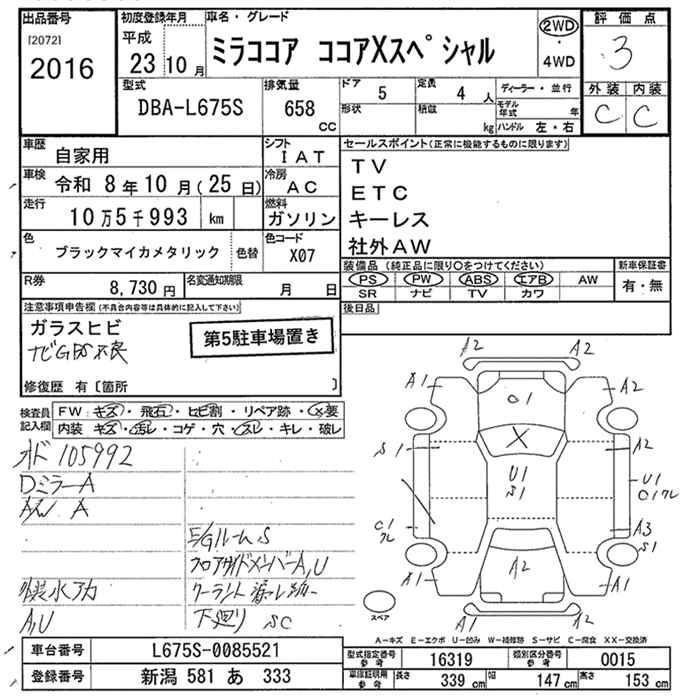 出品番号
[2072]
2016
初度登録年月
平成
23 10 月
車名・グレード
ミラココア ココアXスペシャル
2WD
・
4WD
評価点
3
外装 内装
C C
型式
DBA-L675S
排気量
658
CC
ドア
5
定員
4 人
形状
積載
kg
ディーラー・並行
モデル年式 年
ハンドル 左・右
車歴
自家用
シフト
IAT
車検
令和 8年10月(25日)
冷房
AC
走行
10万5千993 km
燃料
ガソリン
色
ブラックマイカメタリック
色替
色コード
X07
R券
8,730 円
名変通知期限
月 日
セールスポイント(正常に機能するものに限ります)
TV
ETC
キーレス
社外AW
装備品(純正品に限り○をつけてください)
PS PW ABS エアB AW
SR ナビ TV カワ
新車保証書
有・無
後日品
注意事項申告欄(不具合内容等は具体的に記入して下さい)
ガラスヒビ
ナビGPS不良
第5駐車場置き
修復歴 有〔箇所 〕
検査員
記入欄
FW:キズ・飛石・ヒビ割・リペア跡・X要
内装 キズ・汚レ・コゲ・穴・スレ・キレ・破レ
オド 105992
DミラーA
AW A
E/GルームS
フロアサイドメンバーA,U
外装水アカ
A,U
下廻り SC
A2 A2
A1 A2
O1
X
S1 A2
U1
S1
U1
C1
A3
S1
A2
A1 A1
A1 A2
スペア
A-キズ E-エクボ U-凹み W-補修跡 S-サビ C-腐食 XX-交換済
車台番号
L675S-0085521
登録番号
新潟 581 あ 333
型式指定番号
参考
16319
類別区分番号
参考
0015
車庫証明用
参考
長さ 339 cm 幅 147 cm 高さ 153 cm